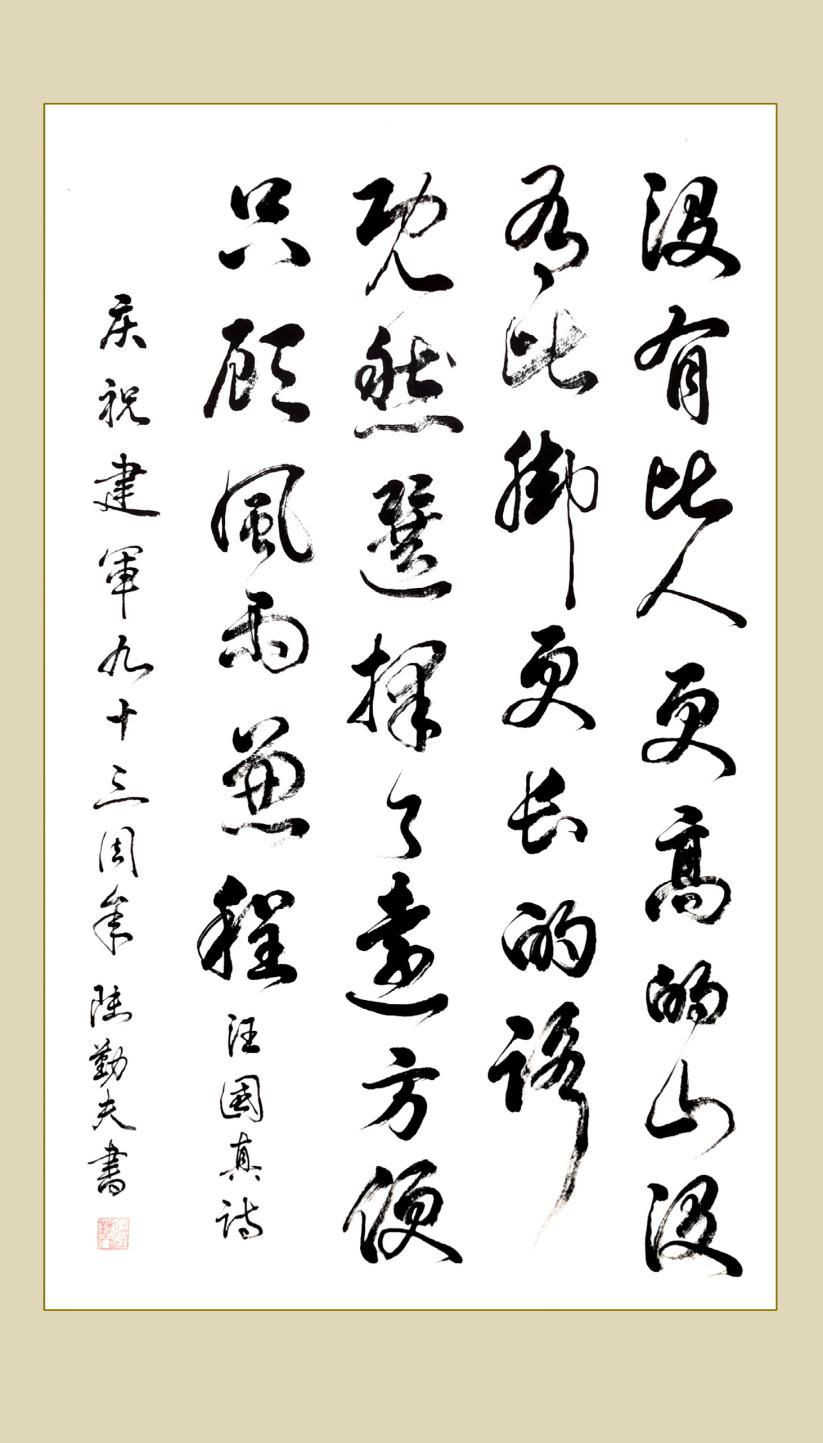 没有比人更高的山没
有比脚更长的路
既然選择了遠方便
只顾風雨兼程
汪國真诗
庆祝建軍九十三周年陆勤夫書